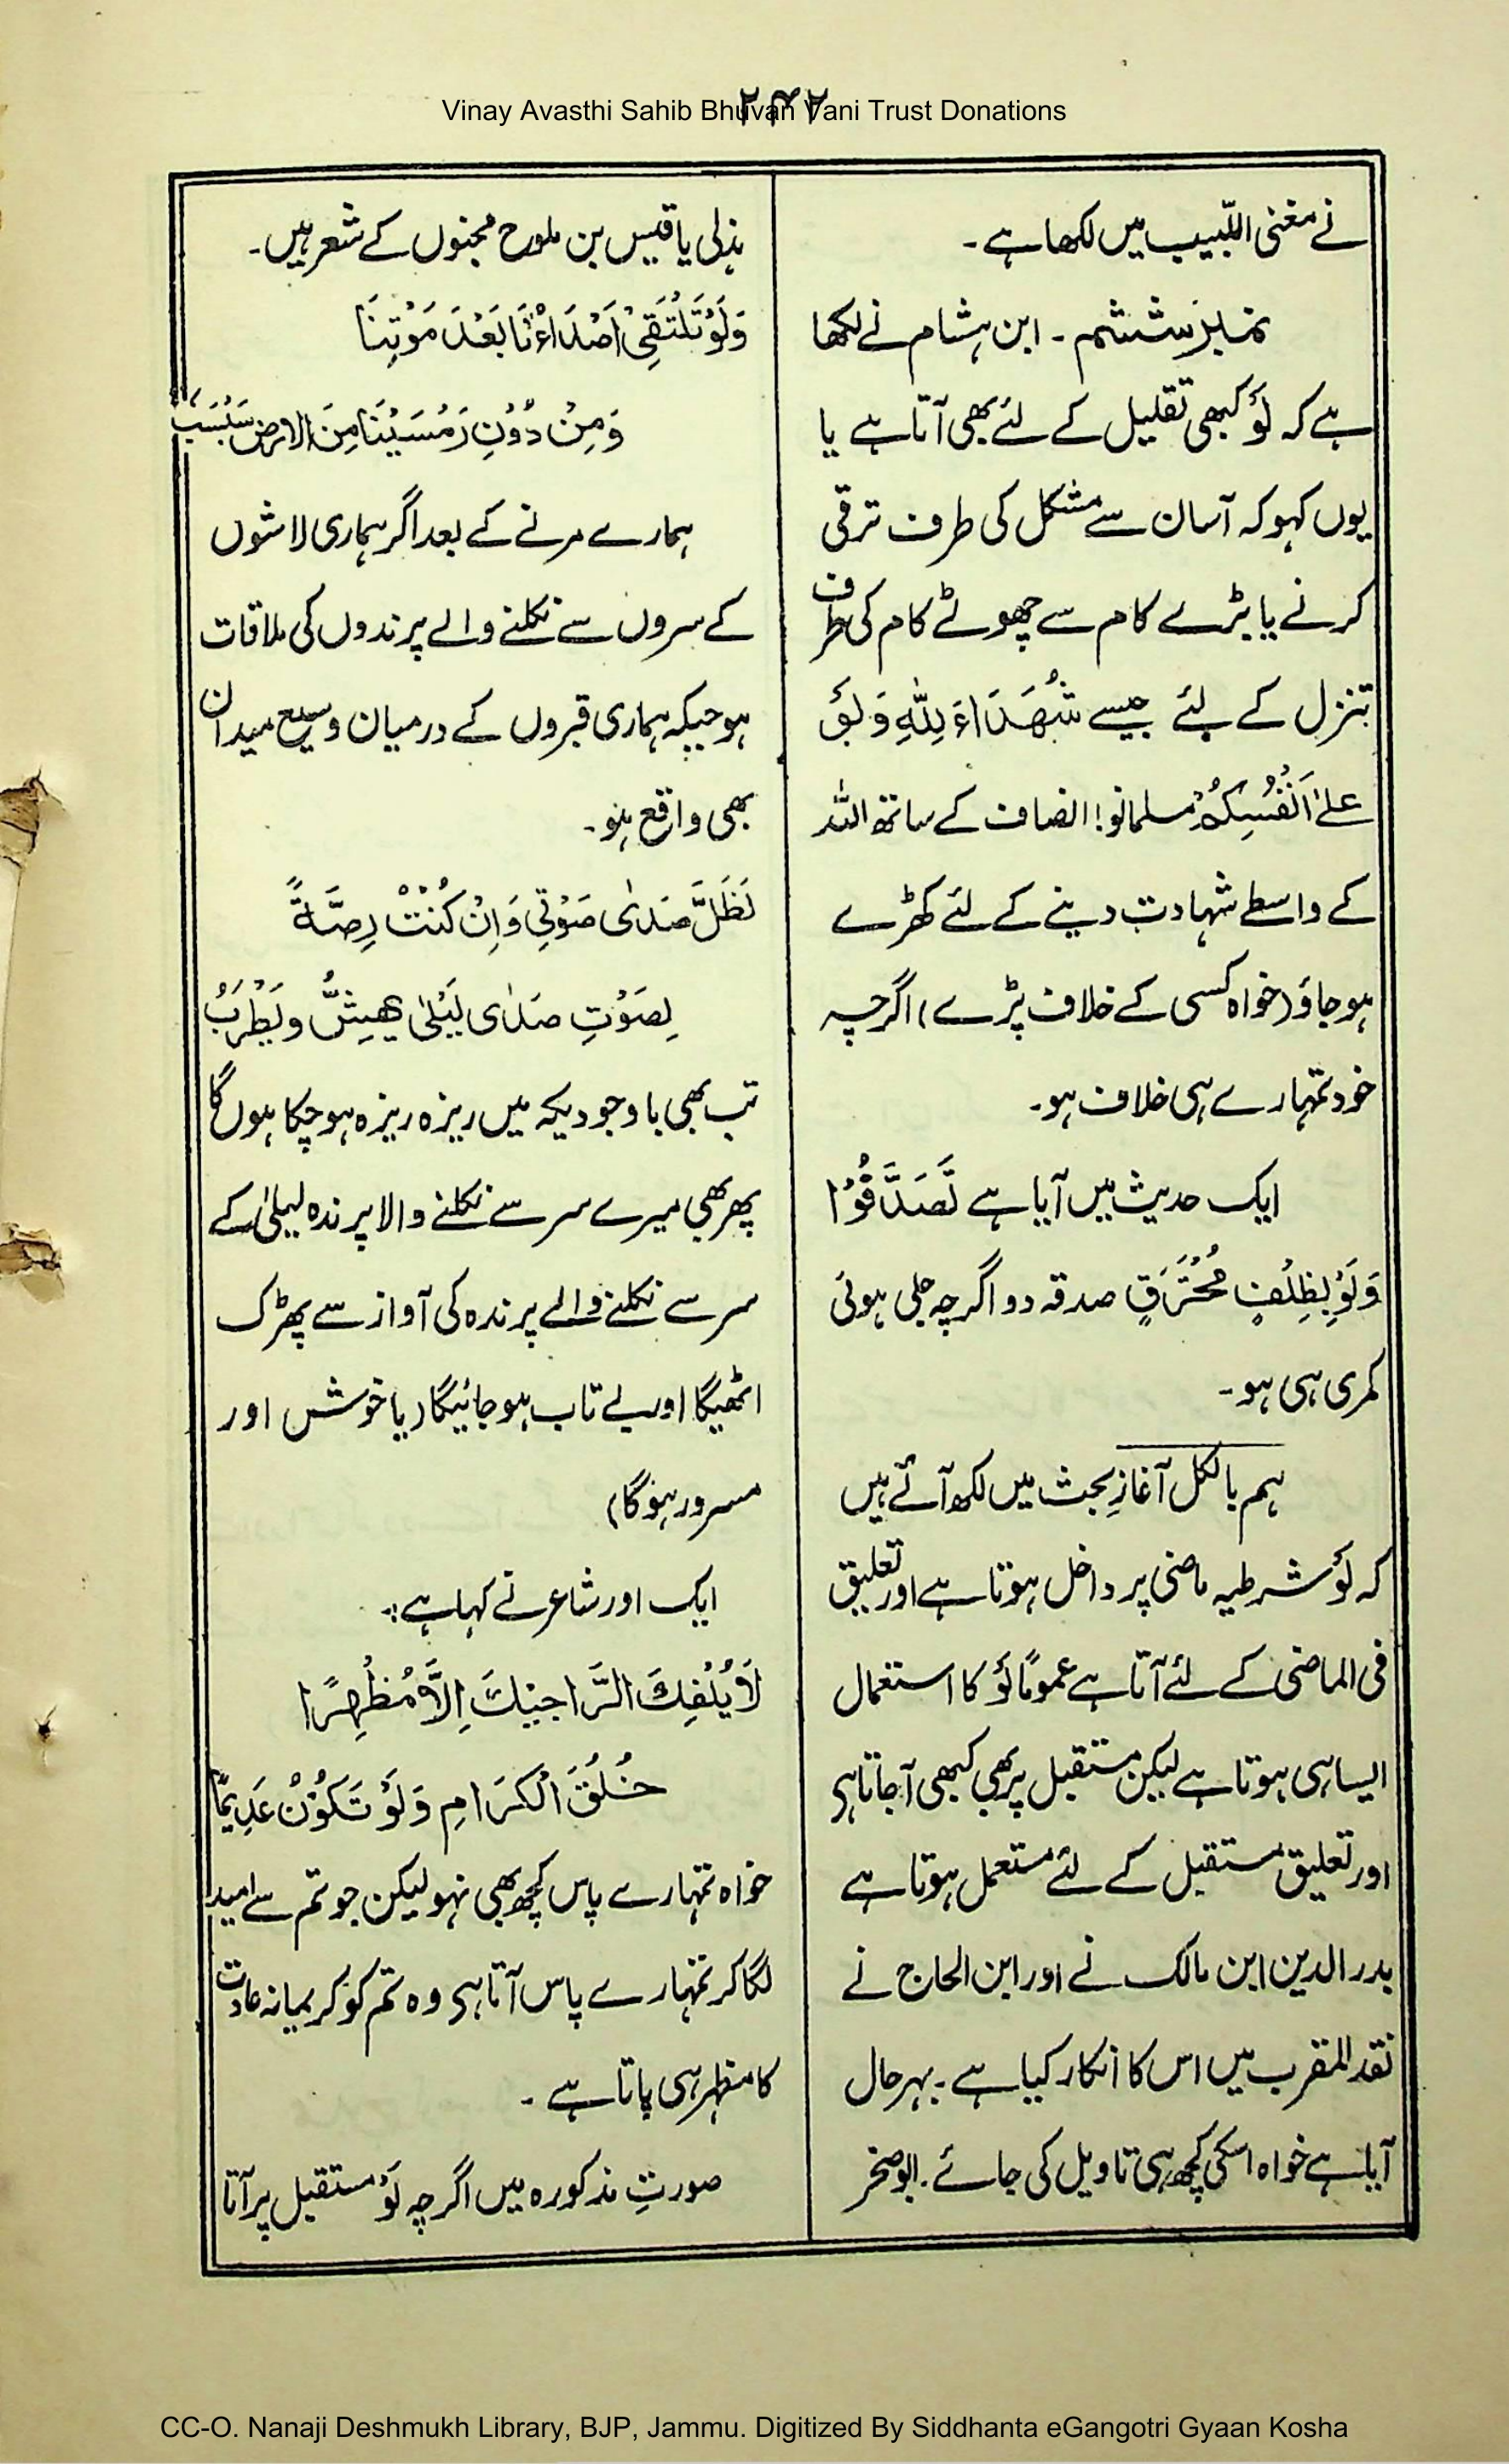 Vinay Avasthi Sahib Bhuvan Vani Trust Donations
نے مغنی اللّبیب میں لکھا ہے۔
نمبر ششم۔ ابن ہشام نے لکھا
ہے کہ لَوْ کبھی تقلیل کے لئے بھی آتا ہے یا
یوں کہو کہ آسان سے مشکل کی طرف ترقی
کرنے یا بڑے کام سے چھوٹے کام کی طرف
تنزل کے لئے جیسے شُهَدَاءَ لِلّٰهِ وَلَوْ
عَلىٰ اَنْفُسِكُمْ مسلمانو! انصاف کے ساتھ اللہ
کے واسطے شہادت دینے کے لئے کھڑے
ہو جاؤ (خواہ کسی کے خلاف پڑے) اگرچہ
خود تمہارے ہی خلاف ہو۔
ایک حدیث میں آیا ہے تَصَدَّقُوْا
وَلَوْ بِظِلْفٍ مُحْتَرَقٍ صدقہ دو اگرچہ جلی ہوئی
کھری ہی ہو۔
ہم بالکل آغازِ بحث میں لکھ آئے ہیں
کہ لَوْ شرطیہ ماضی پر داخل ہوتا ہے اور تعلیق
فی الماضی کے لئے آتا ہے عمومًا لَوْ کا استعمال
ایسا ہی ہوتا ہے لیکن مستقبل پر بھی کبھی آجاتا ہی
اور تعلیق مستقبل کے لئے مستعمل ہوتا ہے
بدر الدین ابن مالک نے اور ابن الحاج نے
نقد المقرب میں اس کا انکار کیا ہے۔ بہرحال
آیا ہے خواہ اسکی کچھ ہی تاویل کی جائے۔ ابو صخر
ہذلی یا قیس بن ملوح مجنوں کے شعر ہیں۔
وَلَوْ تَلْتَقِیْ اَصْدَاءُنَا بَعْدَ مَوْتِنَا
وَمِنْ دُوْنِ رَمْسَیْنَا مِنَ الارض سَبْسَبُ
ہمارے مرنے کے بعد اگر ہماری لاشوں
کے سروں سے نکلنے والے پرندوں کی ملاقات
ہو جبکہ ہماری قبروں کے درمیان وسیع میدان
بھی واقع ہو۔
لَظَلَّ صَدٰی صَوْتِیْ وَاِنْ کُنْتُ رِمَّةً
لِصَوْتِ صَدٰی لَیْلیٰ یَهِشُّ وَیَطْرَبُ
تب بھی باوجودیکہ میں ریزہ ریزہ ہو چکا ہوں گا
پھر بھی میرے سر سے نکلنے والا پرندہ لیلیٰ کے
سر سے نکلنے والے پرندہ کی آواز سے پھڑک
اٹھیگا اور بے تاب ہو جائیگا (یا خوش اور
مسرور ہوگا)
ایک اور شاعر نے کہا ہے:
لَا یُلْفِكَ الرَّاجِیْكَ اِلَّا مُظْهِرًا
خُلُقَ الْکِرَامِ وَلَوْ تَکُوْنُ عَدِیْمًا
خواہ تمہارے پاس کچھ بھی نہو لیکن جو تم سے امید
لگا کر تمہارے پاس آتا ہی وہ تم کو کریمانہ عادت
کا مظہر ہی پاتا ہے۔
صورتِ مذکورہ میں اگرچہ لَوْ مستقبل پر آتا
CC-O. Nanaji Deshmukh Library, BJP, Jammu. Digitized By Siddhanta eGangotri Gyaan Kosha